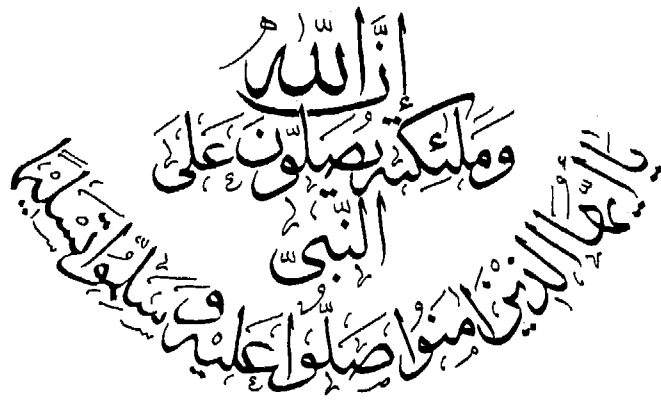 إِنَّ اللّٰهَ
وَمَلٰئِكَتَهُ يُصَلُّونَ عَلَى
النَّبِيِّ
يٰاَيُّهَا الَّذِيْنَ اٰمَنُوا صَلُّوا عَلَيْهِ وَسَلِّمُوا تَسْلِيْمًا